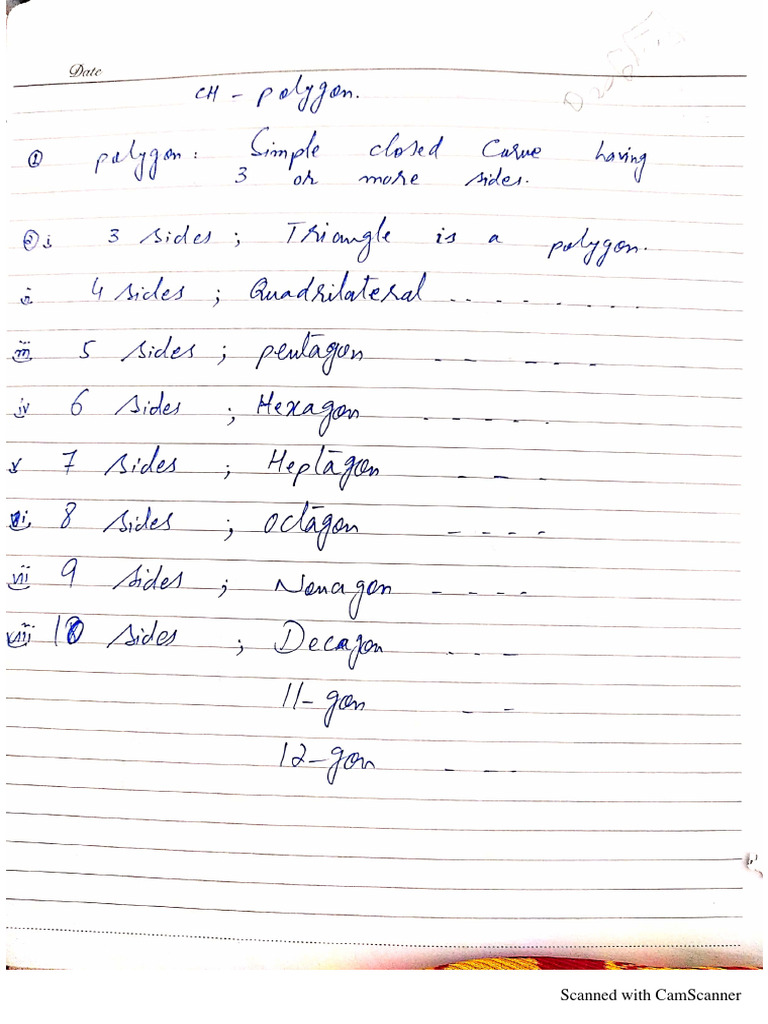 Date
CH - polygon.
① polygon: Simple closed Curve having
3 or more sides.
② i 3 sides ; Triangle is a polygon.
ii 4 sides ; Quadrilateral - - - - - - - -
iii 5 sides ; pentagon - - - - - -
iv 6 sides ; Hexagon - - - - - -
v 7 sides ; Heptagon - - -
vi 8 sides ; octagon - - - -
vii 9 sides ; Nonagon - - - -
viii 10 sides ; Decagon - - -
11-gon - -
12-gon - - -
Scanned with CamScanner